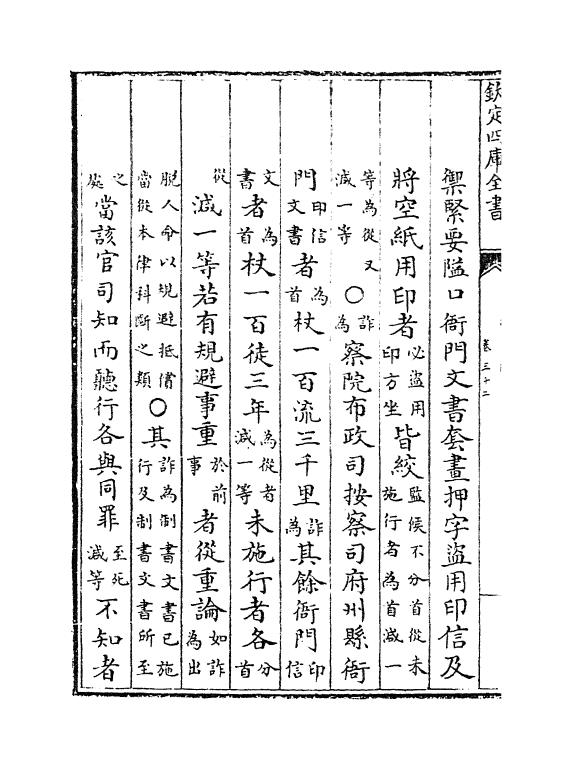 欽定四庫全書 卷三十二
禦緊要隘口衙門文書套畫押字盜用印信及
將空紙用印者必盜用印方坐皆絞監候不分首從未施行者為首減一
等為從又減一等〇詐為察院布政司按察司府州縣衙
門印信文書者為首杖一百流三千里詐為其餘衙門印信
文書者為首杖一百徒三年為從者減一等未施行者各分首
從減一等若有規避事重於前事者從重論如詐為出
脫人命以規避抵償當從本律科斷之類〇其詐為制書文書已施行及制書文書所至
之處當該官司知而聽行各與同罪至死減等不知者